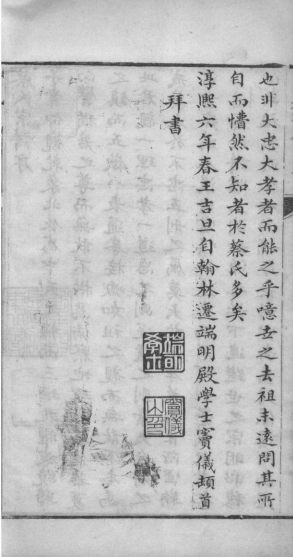 也非大忠大孝者而能之乎噫世之去祖未遠問其所
自而懵然不知者於蔡氏多矣
淳熙六年春王吉旦自翰林遷端明殿學士竇儀頓首
拜書
竇儀